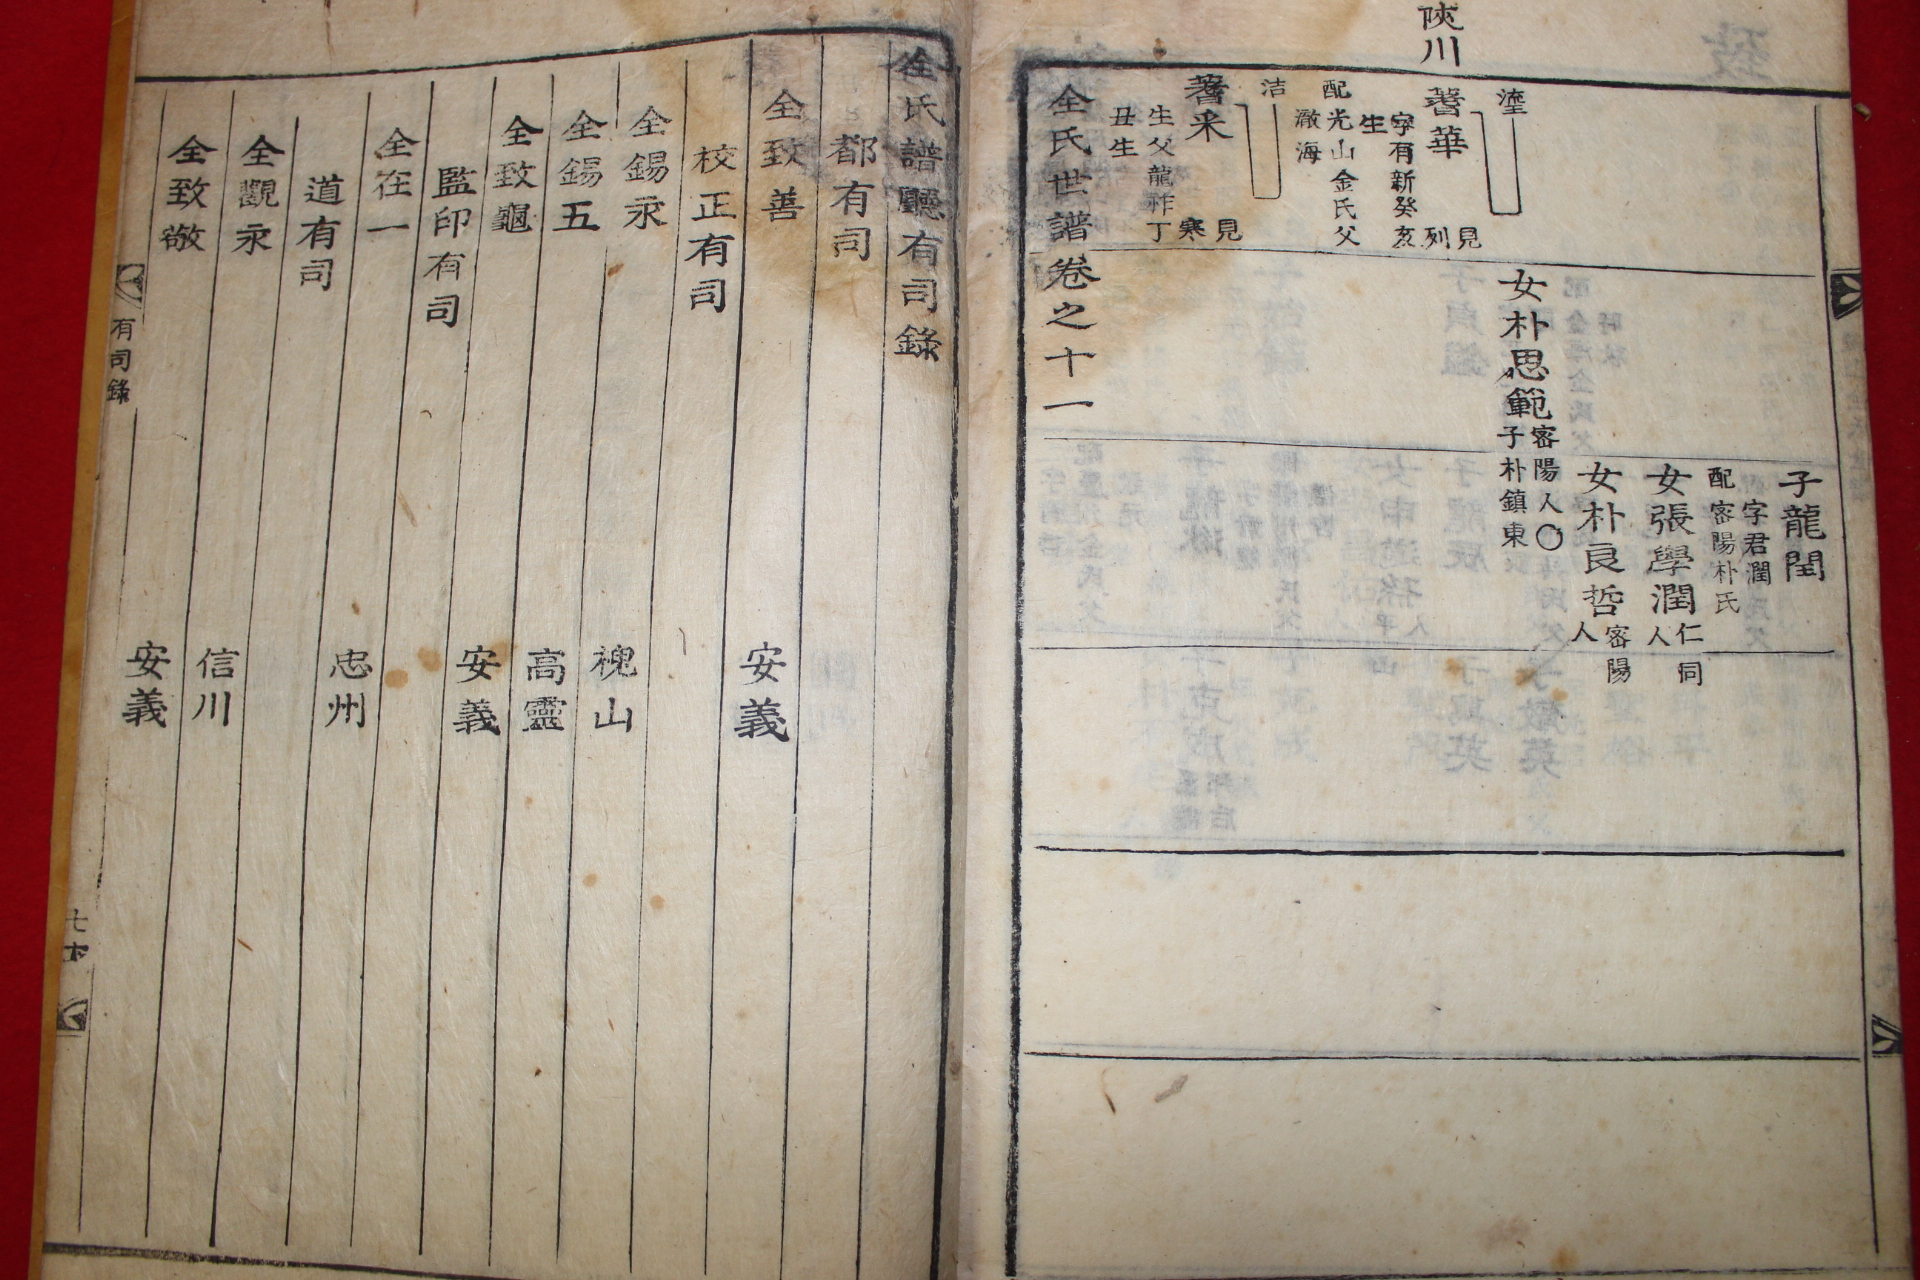 陜川
子龍閏
字君潤
配密陽朴氏
女張學潤
仁同
人
女朴良哲
密陽
人
女朴思範
密陽人〇
子朴鎮東
塗
見
列
蓍華
字有新癸亥
生
配光山金氏父
澈海
洁
見
寒
蓍来
生父龍祚丁
丑生
全氏世譜卷之十一
全氏譜廳有司錄
都有司
全致善 安義
校正有司
全錫永 槐山
全錫五 高靈
全致龜 安義
監印有司
全在一 忠州
道有司
全觀永 信川
全致敬 安義
有司錄